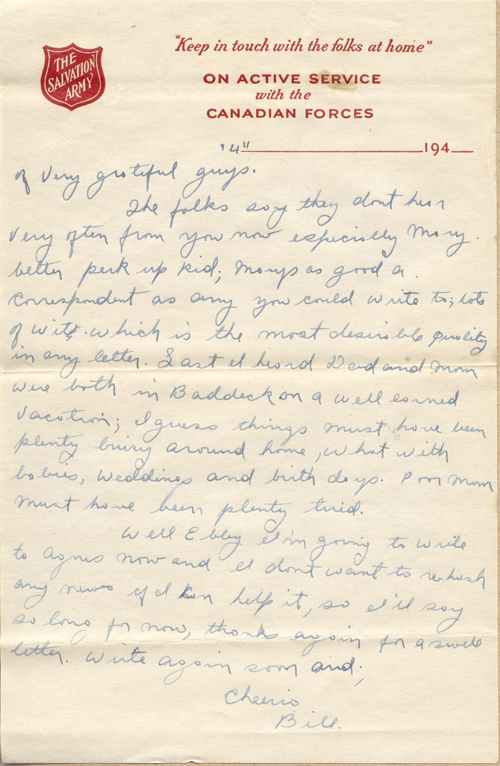 THE
SALVATION
ARMY
"Keep in touch with the folks at home"
ON ACTIVE SERVICE
with the
CANADIAN FORCES
"4" 194
of very grateful guys.
The folks say they dont hear
very often from you now especially Mary.
better perk up kid; Marys as good a
correspondent as any you could write to; lots
of wit. which is the most desirible quality
in any letter. Last I heard Dad and Mom
were both in Baddeck on a well earned
vacation; I guess things must have been
plenty busy around home, what with
babies, weddings and birth days. Poor Mom
must have been plenty tired.
Well Ebby I'm going to write
to Agnes now and I dont want to rehash
any news if I kan help it, so I'll say
so long for now, thanks again for a swell
letter. Write again soon and,
Cheerio
Bill.